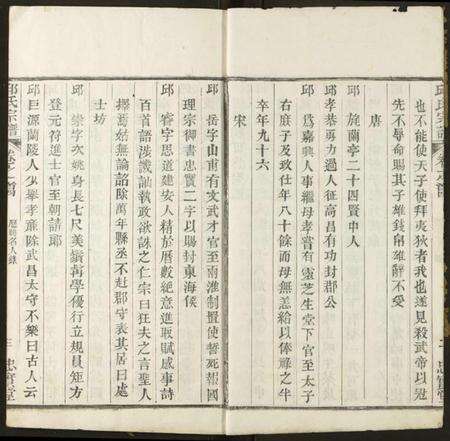 邱氏宗譜
卷之首
二 忠實堂
也不能使天子使拜夷狄者我也遂見殺武帝以冠
先不辱命賜其子雄錢帛雄辭不受
唐
邱 旄蘭亭二十四賢中人
邱孝恭勇力過人征高昌有功封郡公
邱 為嘉興人事繼母孝嘗有靈芝生堂下官至太子
右庶子及致仕年八十餘而母無恙給以俸祿之半
卒年九十六
宋
邱 岳字山甫有文武才官至南淮制置使誓死報國
理宗御書忠實二字以賜封東海侯
邱 濬字思道建安人精於曆數絕意進取賦感事詩
百首語涉譏訕執政欲誅之仁宗曰狂夫之言聖人
擇焉姑無論詔除萬年縣丞不赴郡守表其居曰處
士坊
邱 崇字次姚身長七尺美鬚髯學優行立規員矩方
登元符進士官至朝請郎
邱巨源蘭陵人少舉孝廉除武昌太守不樂曰古人云
邱氏宗譜
卷之首
歷朝名人錄
三 忠實堂